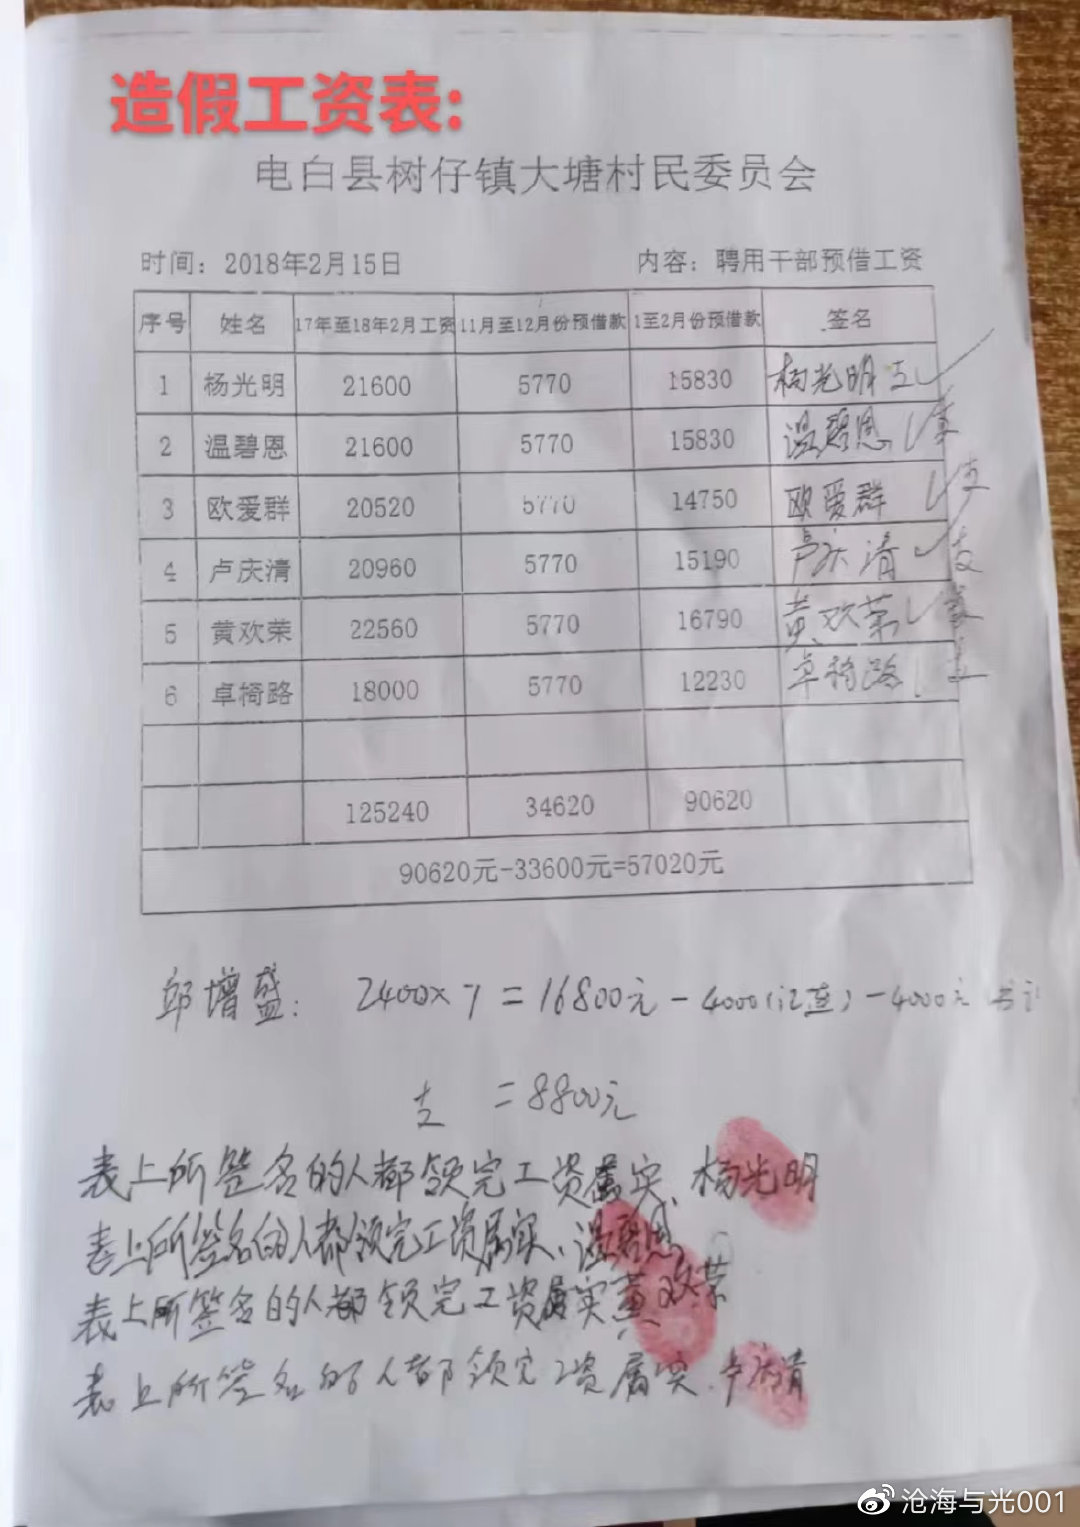 造假工资表:
电白县树仔镇大塘村民委员会
时间：2018年2月15日 内容：聘用干部预借工资
序号 姓名 17年至18年2月工资 11月至12月份预借款 1至2月份预借款 签名
1 杨光明 21600 5770 15830 杨光明 支
2 温碧恩 21600 5770 15830 温碧恩
3 欧爱群 20520 5770 14750 欧爱群 支
4 卢庆清 20960 5770 15190 卢庆清 支
5 黄欢荣 22560 5770 16790 黄欢荣
6 卓椅路 18000 5770 12230 卓椅路 支
125240 34620 90620
90620元-33600元=57020元
邱增盛： 2400×7=16800元-4000 -4000元
支 =8800元
表上所签名的人都领完工资属实、杨光明
表上所签名的人都领完工资属实、温碧恩
表上所签名的人都领完工资属实黄欢荣
表上所签名的人都领完工资属实.卢庆清
沧海与光001